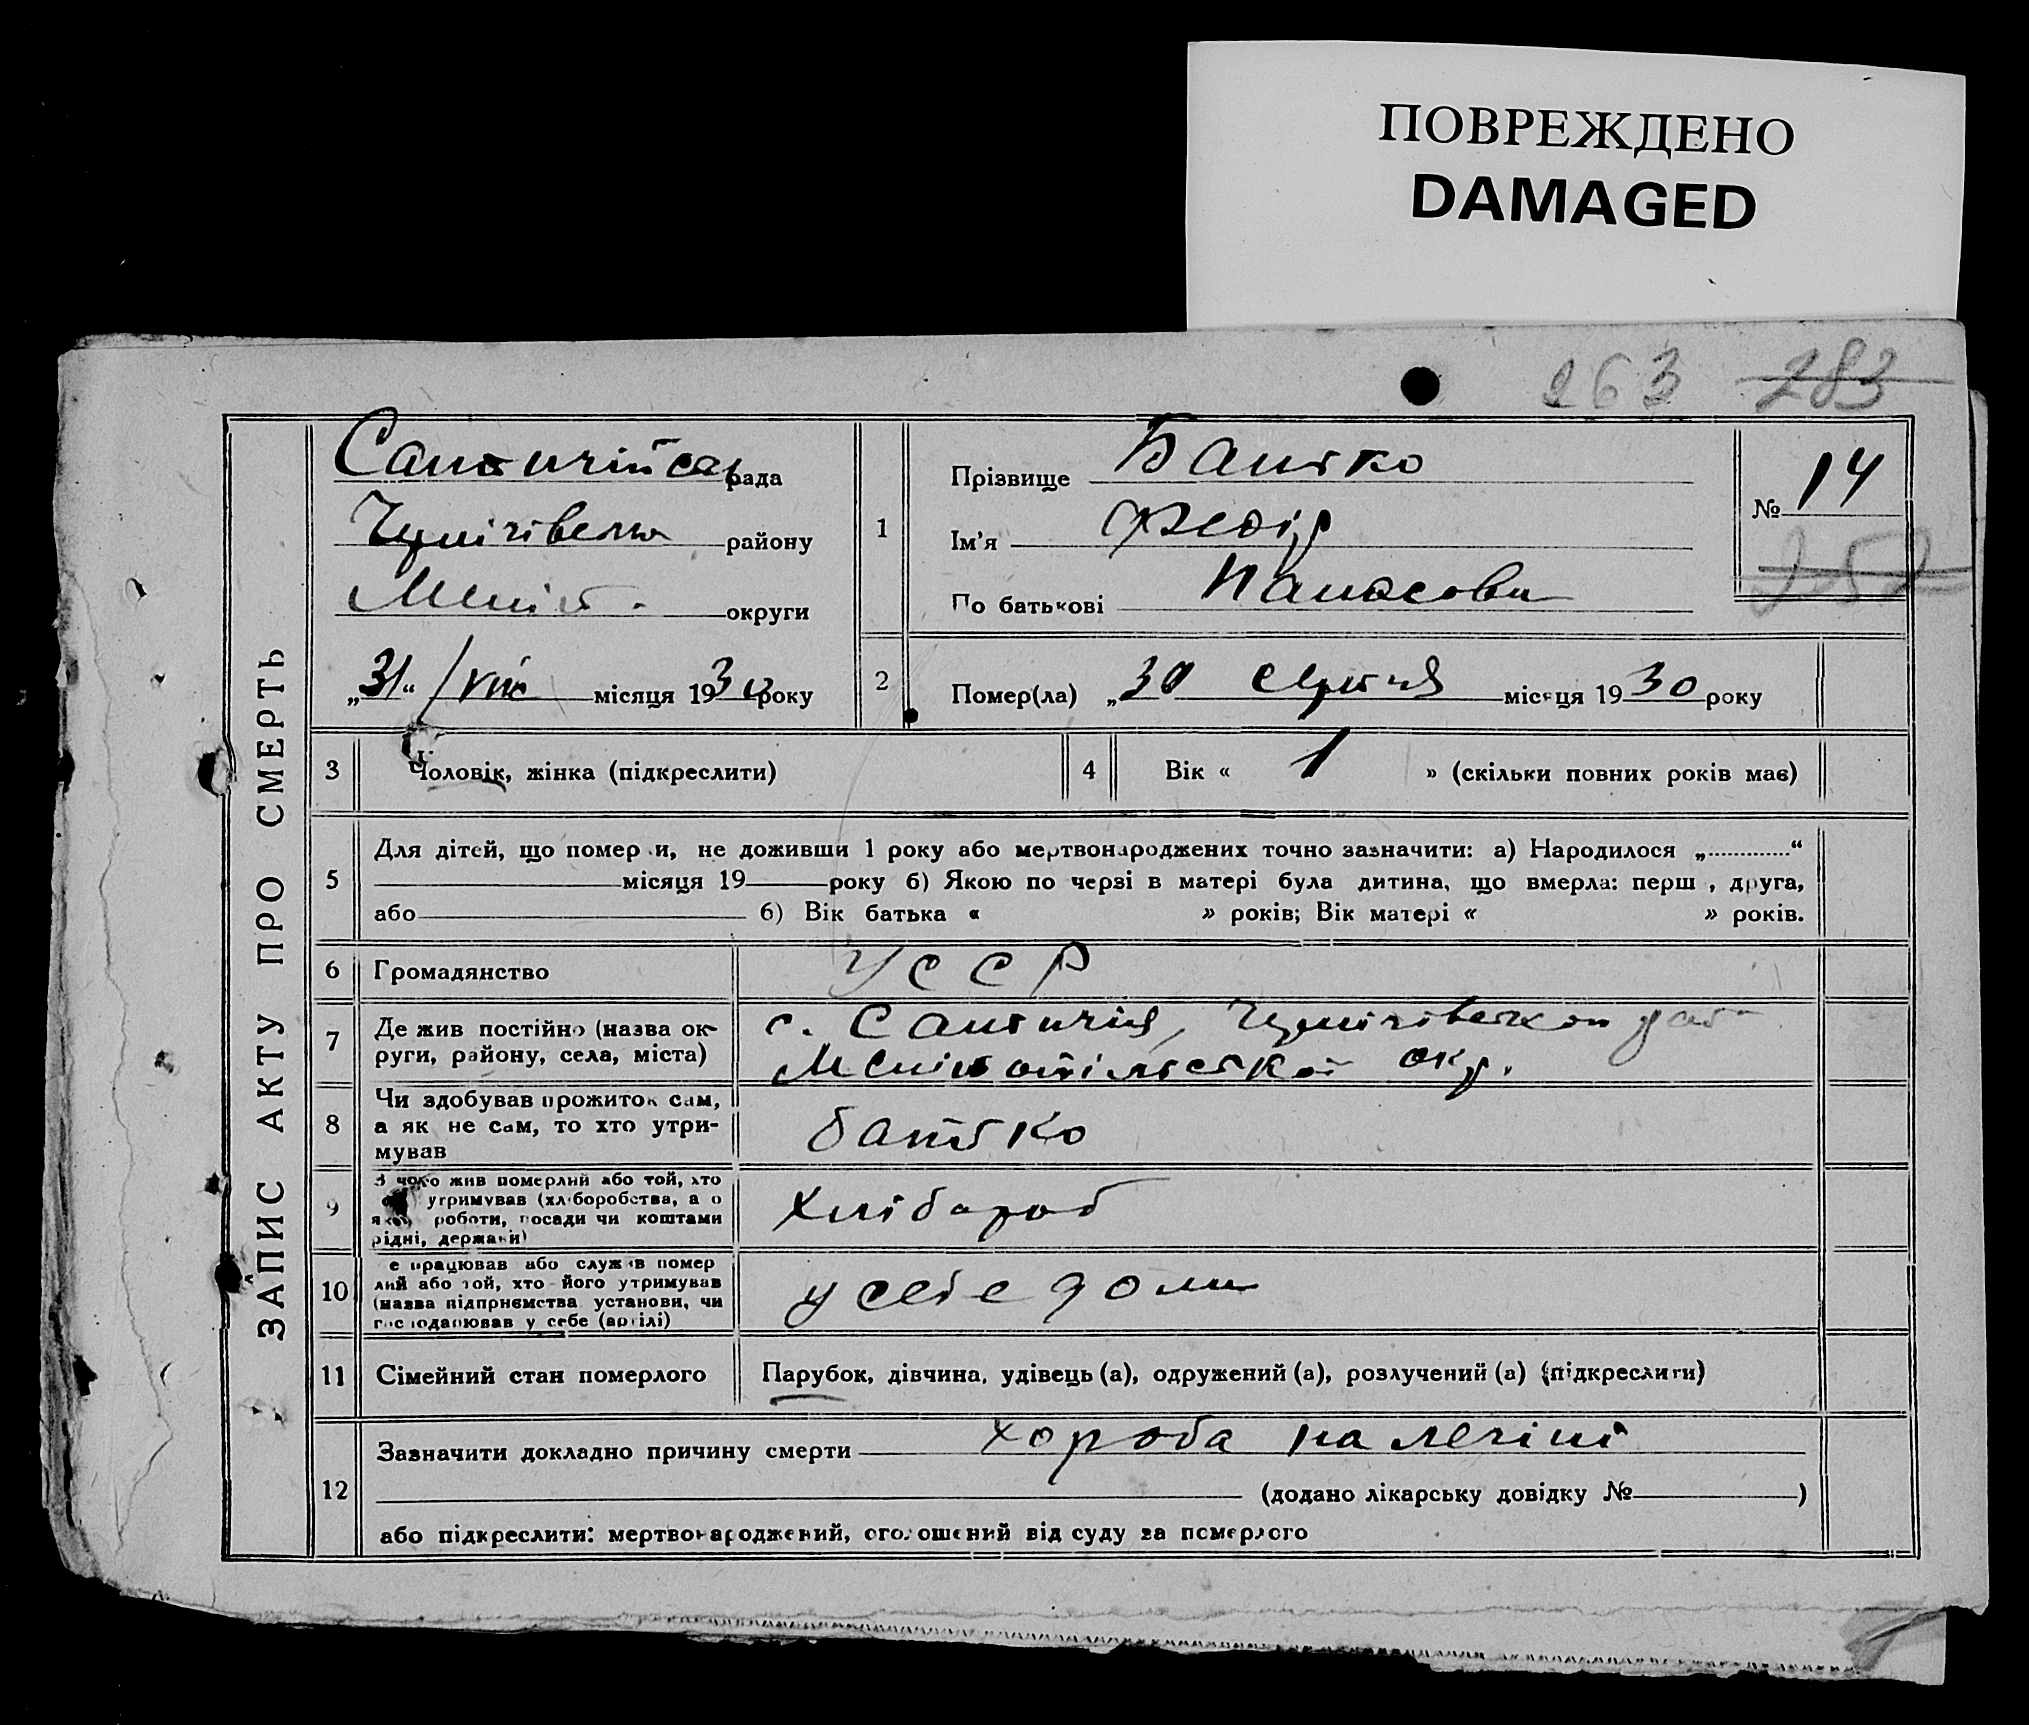 ПОВРЕЖДЕНО
DAMAGED
263 283
ЗАПИС АКТУ ПРО СМЕРТЬ
рада
району
округи
„31“ /VIII місяця 1930 року
1
Прізвище
Ім'я Федір
По батькові
№ 14
252
2 Помер(ла) „30 серпня місяця 1930 року
3 Чоловік, жінка (підкреслити)
4 Вік « 1 » (скільки повних років має)
5 Для дітей, що померли, не доживши 1 року або мертвонароджених точно зазначити: а) Народилося „............“
місяця 19 року б) Якою по черзі в матері була дитина, що вмерла: перш , друга,
або 6) Вік батька « » років; Вік матері « » років.
6 Громадянство УССР
7 Де жив постійно (назва ок-
руги, району, села, міста)
с.
окр.
8 Чи здобував прожиток сам,
а як не сам, то хто утри-
мував
батько
9 З чого жив померлий або той, хто
утримував (хліборобства, а о
якої роботи, посади чи коштами
рідні, держави)
хлібароб
10 е працював або служив помер
лий або той, хто його утримував
(назва підприємства установи, чи
господарював у себе (артілі)
у себе дома
11 Сімейний стан померлого Парубок, дівчина, удівець (а), одружений (а), розлучений (а) (підкреслити)
12 Зазначити докладно причину смерти хороба на легіні
(додано лікарську довідку № )
або підкреслити: мертвонароджений, оголошений від суду за померлого